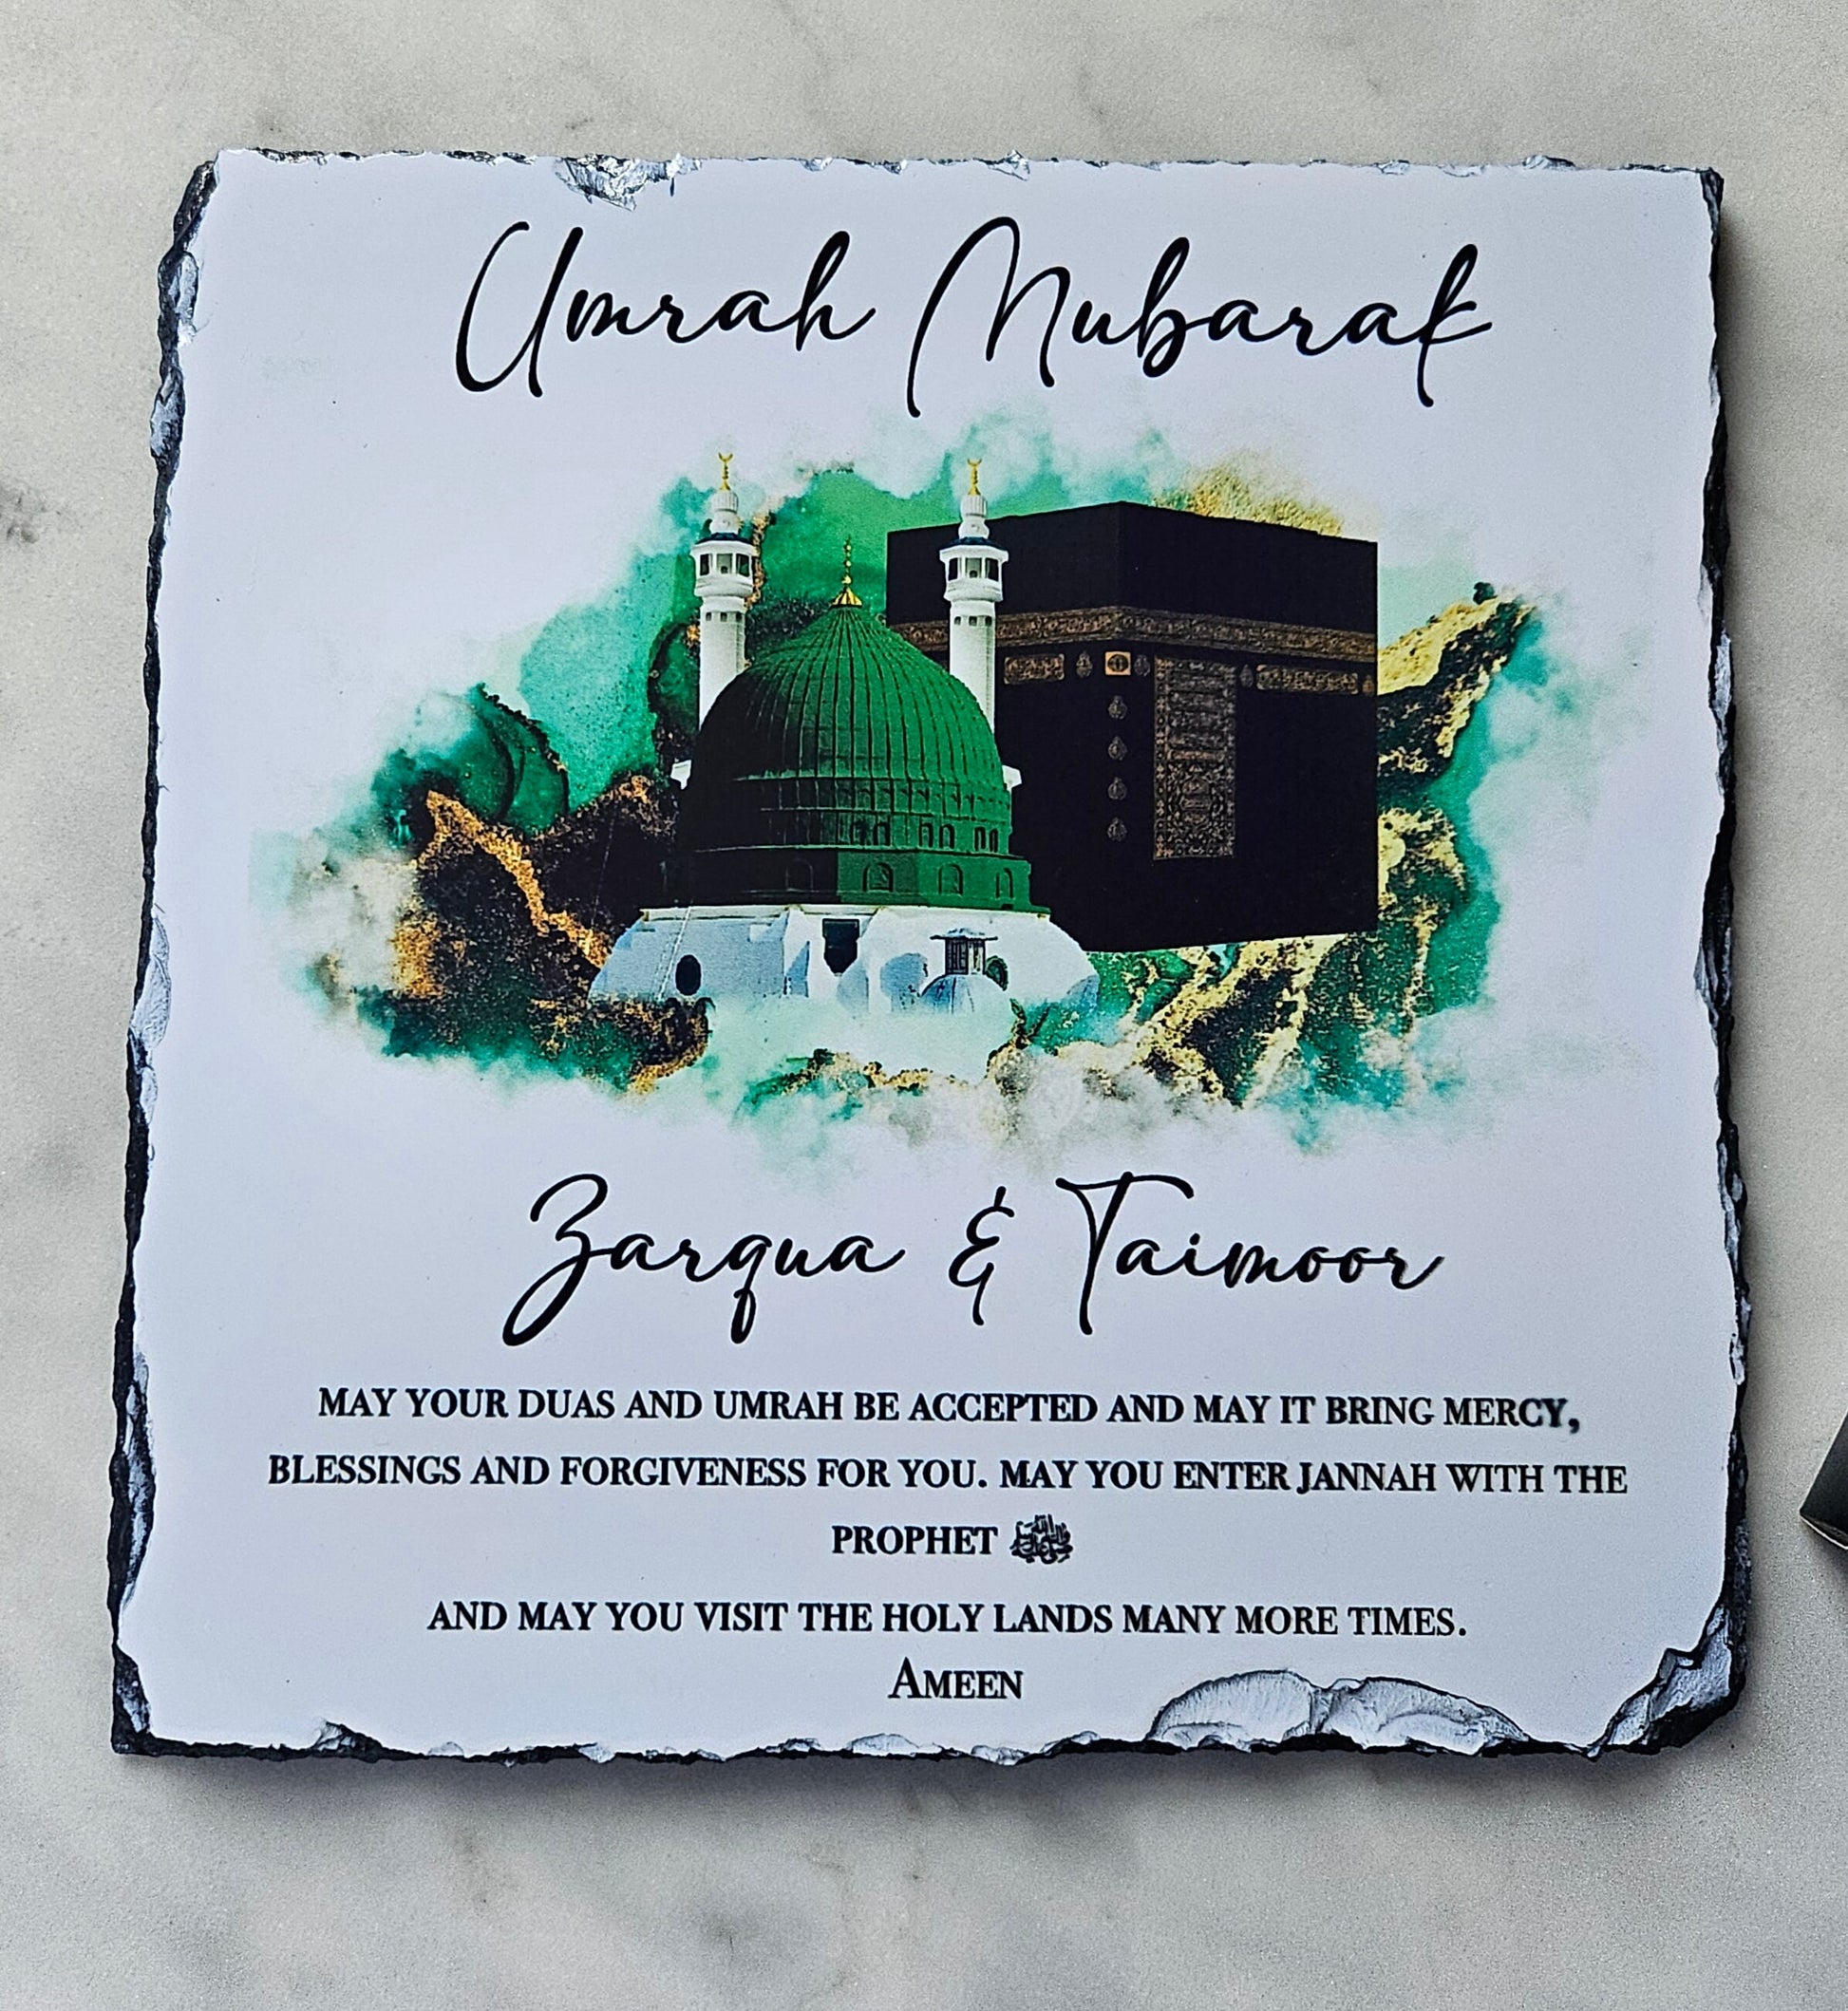 Umrah Mubarak
Zarqua & Taimoor
MAY YOUR DUAS AND UMRAH BE ACCEPTED AND MAY IT BRING MERCY,
BLESSINGS AND FORGIVENESS FOR YOU. MAY YOU ENTER JANNAH WITH THE
PROPHET ﷺ
AND MAY YOU VISIT THE HOLY LANDS MANY MORE TIMES.
AMEEN